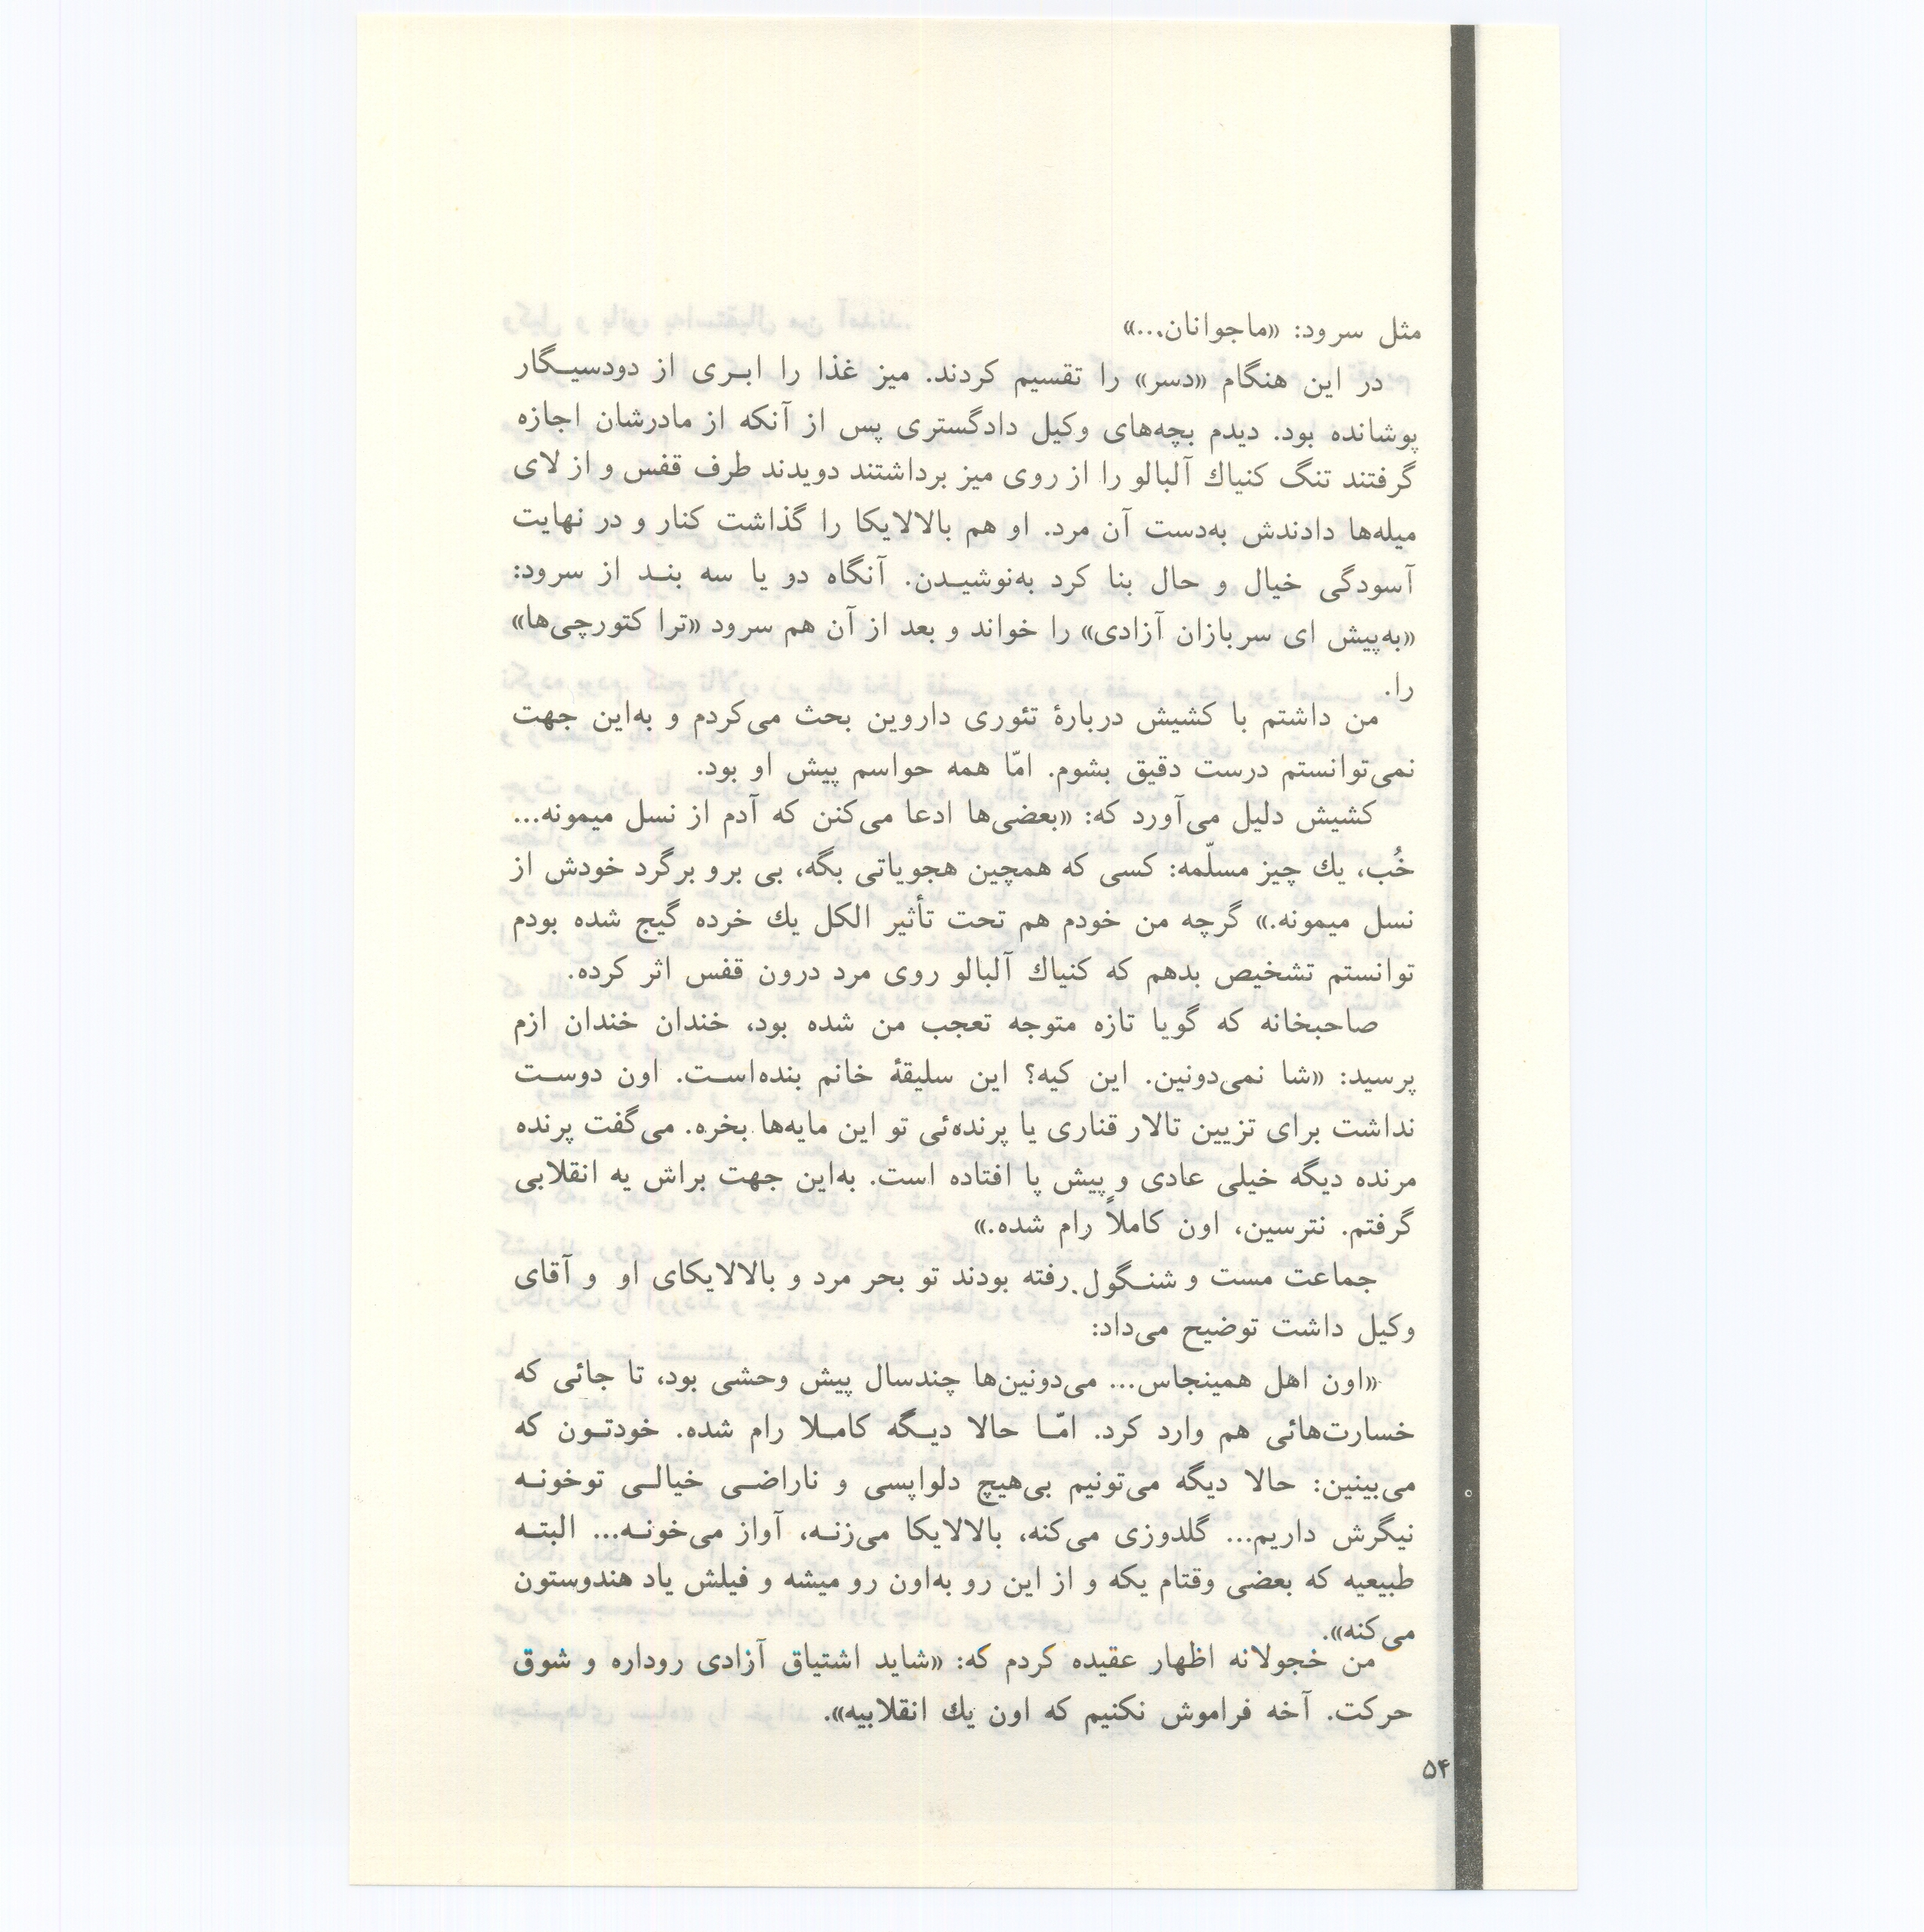 مثل سرود: «ماجوانان...»
در این هنگام «دسر» را تقسیم کردند. میز غذا را ابـری از دودسیـگار
پوشانده بود. دیدم بچه‌های وکیل دادگستری پس از آنکه از مادرشان اجازه
گرفتند تنگ کنیاك آلبالو را از روی میز برداشتند دویدند طرف قفس و از لای
میله‌ها دادندش به‌دست آن مرد. او هم بالالایکا را گذاشت کنار و در نهایت
آسودگی خیال و حال بنا کرد به‌نوشیـدن. آنگاه دو یا سه بنـد از سرود:
«به‌پیش ای سربازان آزادی» را خواند و بعد از آن هم سرود «ترا کتورچی‌ها»
را.
من داشتم با کشیش دربارهٔ تئوری داروین بحث می‌کردم و به‌این جهت
نمی‌توانستم درست دقیق بشوم. امّا همه حواسم پیش او بود.
کشیش دلیل می‌آورد که: «بعضی‌ها ادعا می‌کنن که آدم از نسل میمونه...
خُب، یك چیز مسلّمه: کسی که همچین هجویاتی بگه، بی برو برگرد خودش از
نسل میمونه.» گرچه من خودم هم تحت تأثیر الکل یك خرده گیج شده بودم
توانستم تشخیص بدهم که کنیاك آلبالو روی مرد درون قفس اثر کرده.
صاحبخانه که گویا تازه متوجه تعجب من شده بود، خندان خندان ازم
پرسید: «شا نمی‌دونین. این کیه؟ این سلیقهٔ خانم بنده‌اسـت. اون دوسـت
نداشت برای تزیین تالار قناری یا پرنده‌ئی تو این مایه‌ها بخره. می‌گفت پرنده
مرنده دیگه خیلی عادی و پیش پا افتاده است. به‌این جهت براش یه انقلابی
گرفتم. نترسین، اون کاملاً رام شده.»
جماعت مست و شنـگول رفته بودند تو بحر مرد و بالالایکای او و آقای
وکیل داشت توضیح می‌داد:
«اون اهل همینجاس... می‌دونین‌ها چندسال پیش وحشی بود، تا جائی که
خسارت‌هائی هم وارد کرد. امّـا حالا دیـگه کامـلا رام شده. خودتـون که
می‌بینین: حالا دیگه می‌تونیم بی‌هیچ دلواپسی و ناراضـی خیالـی توخونـه
نیگرش داریم... گلدوزی می‌کنه، بالالایکا می‌زنـه، آواز می‌خونـه... البتـه
طبیعیه که بعضی وقتام یکه و از این رو به‌اون رو میشه و فیلش یاد هندوستون
می‌کنه».
من خجولانه اظهار عقیده کردم که: «شاید اشتیاق آزادی روداره و شوق
حرکت. آخه فراموش نکنیم که اون یك انقلابیه».
۵۴